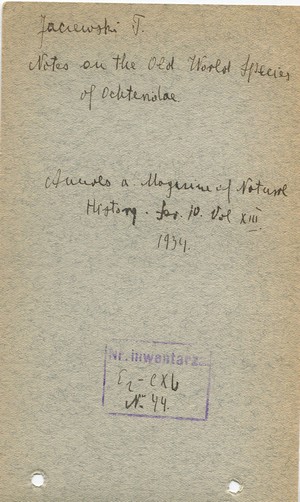 Jaczewski T.
Notes on the Old World Species
of Ochteridae
Annals a. Magazine of Natural
History. Ser. 10. Vol XIII
1934.
Nr. inwentarz.
№ 44.